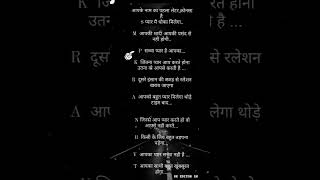 आपके नाम का पहला लेटर कौनसा है
S प्यार में धोखा मिलेगा..
M आपकी शादी आपकी पसंद से नहीं होगी...
P सच्चा प्यार है आपका...
K जितना प्यार आप करते होगा उतना वो आपसे करते है ...
R दूसरे इंसान की वजह से रलेशन खराब जाएगा
A आपको बहुत प्यार मिलेगा थोड़े टाइम बाद...
N जिनको आप प्यार करते हो वो आपसे नहीं करते...
किसी के लिए बहुत तड़पना पड़ेगा...
V आपका प्यार सच्चा नहीं है ...
T आपका साथी बहुत खूबसूरत होगा
दूस
लेगा थोड़े